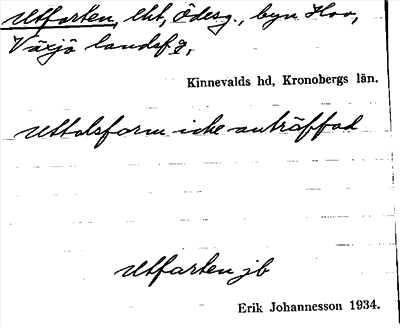 Utfarten, lht, Ödesg., byn Hov,
Växjö landsf g,
Kinnevalds hd, Kronobergs län.
Uttalsform icke anträffad
Utfarten jb
Erik Johannesson 1934.